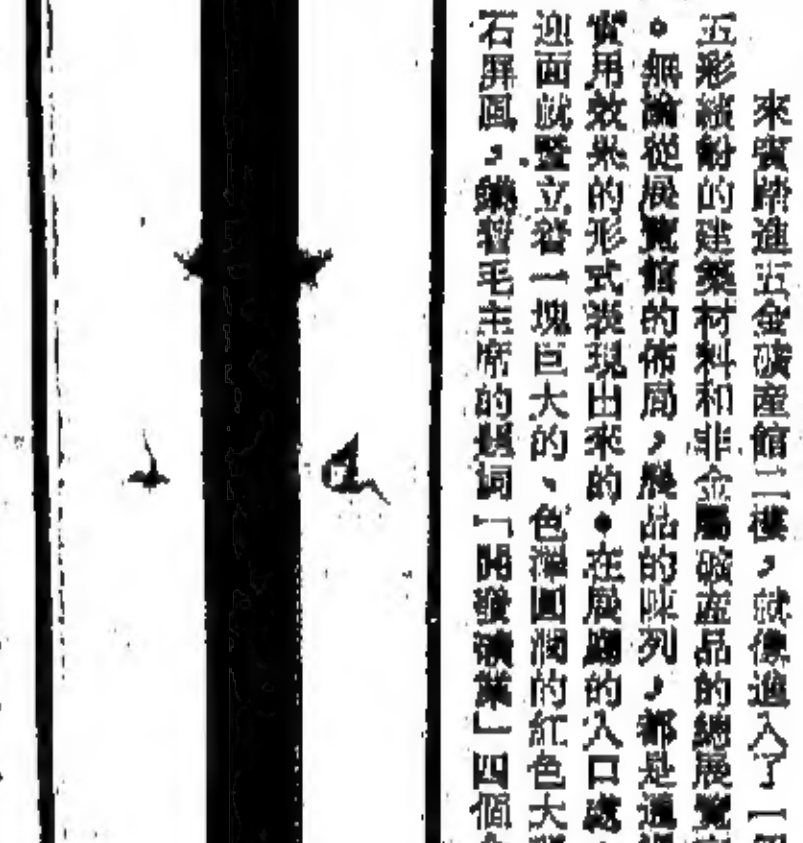 來賓踏進五金礦產館二樓，就像進入了一個
五彩繽紛的建築材料和非金屬礦產品的總展覽
。無論從展覽館的佈局，展品的陳列，都是通過
實用效果的形式表現出來的。在展廳的入口處
迎面就豎立着一塊巨大的、色澤圓潤的紅色大
石屏風，鐫着毛主席的題詞「開發礦業」四個